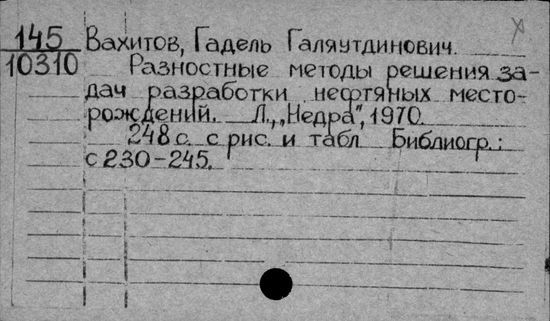 145 Вахитов, Гадель Галяутдинович.
10310 Разностные методы решения за-
дач разработки нефтяных место-
рождений. Л., „Недра", 1970.
248 с. с рис. и табл Библиогр.:
с 230-245.